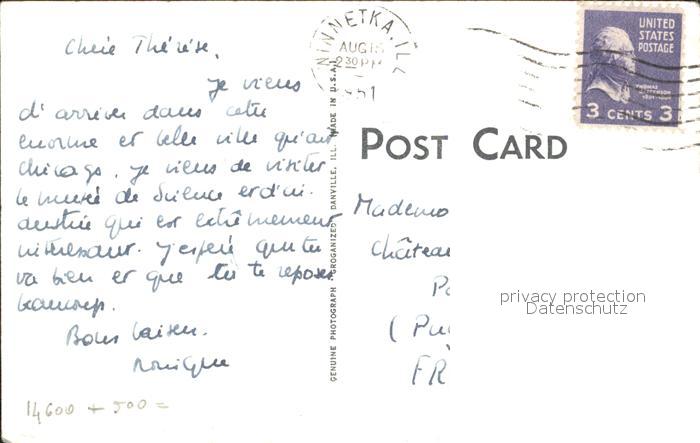 Chère Thérèse,
je viens
d'arriver dans cette
énorme et belle ville qu'est
Chicago. Je viens de visiter
le musée de Science et d'in-
dustrie qui est extrêmement
intéressant. J'espère que tu
va bien et que tu te reposes
beaucoup.
Bons baisers.
Monique
14600 + 500 =
WINNETKA, ILL
AUG 15
2 30 PM
1951
GENUINE PHOTOGRAPH GROGANIZED DANVILLE, ILL. MADE IN U.S.A.
UNITED
STATES
POSTAGE
THOMAS
JEFFERSON
3 CENTS 3
POST CARD
Mademo
Château
(
FR
privacy protection
Datenschutz